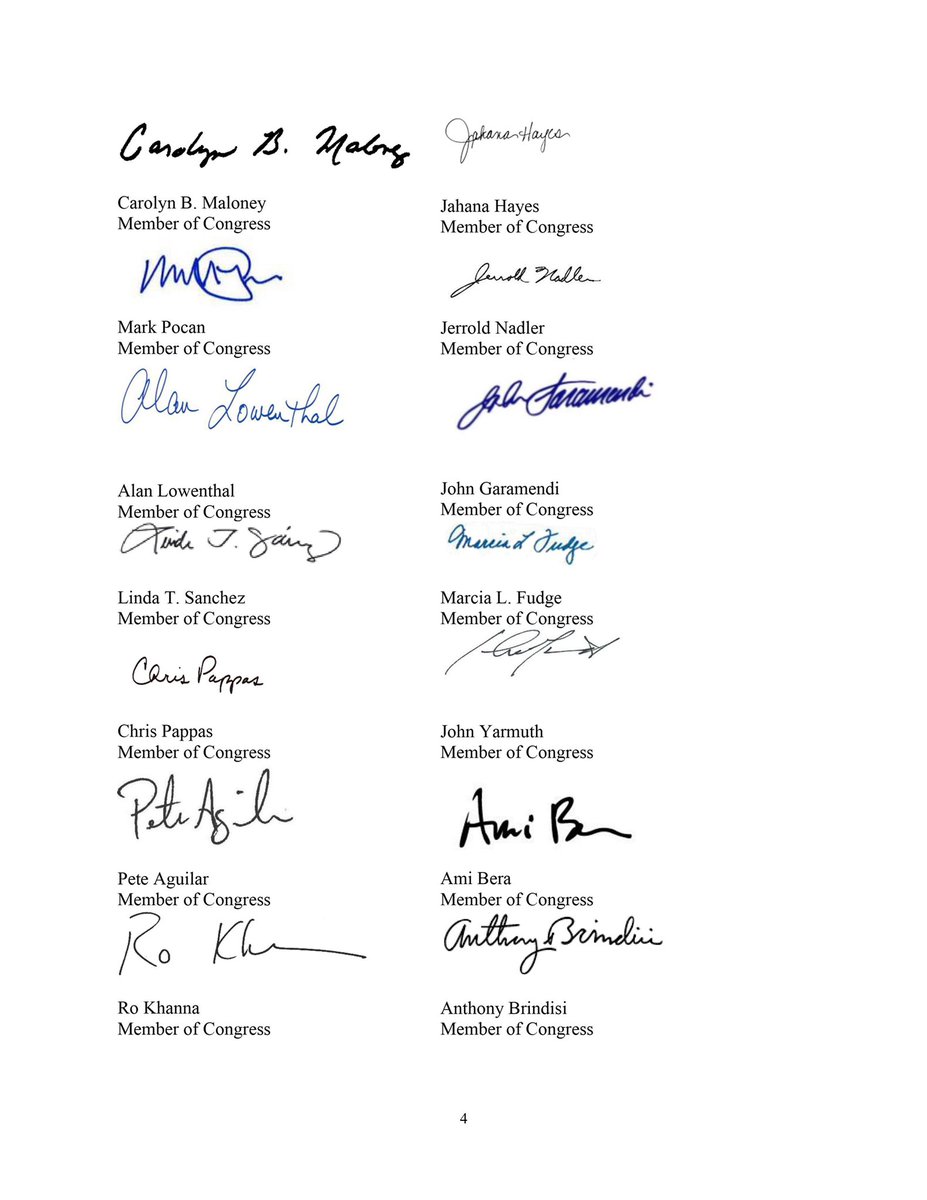 Carolyn B. Maloney
Jahana Hayes
Carolyn B. Maloney
Member of Congress
Jahana Hayes
Member of Congress
Jerrold Nadler
Mark Pocan
Member of Congress
Jerrold Nadler
Member of Congress
Alan Lowenthal
John Garamendi
Alan Lowenthal
Member of Congress
John Garamendi
Member of Congress
Linda T. Sánchez
Marcia L Fudge
Linda T. Sanchez
Member of Congress
Marcia L. Fudge
Member of Congress
Chris Pappas
Chris Pappas
Member of Congress
John Yarmuth
Member of Congress
Pete Aguilar
Ami Bera
Pete Aguilar
Member of Congress
Ami Bera
Member of Congress
Ro Khanna
Anthony Brindisi
Ro Khanna
Member of Congress
Anthony Brindisi
Member of Congress
4